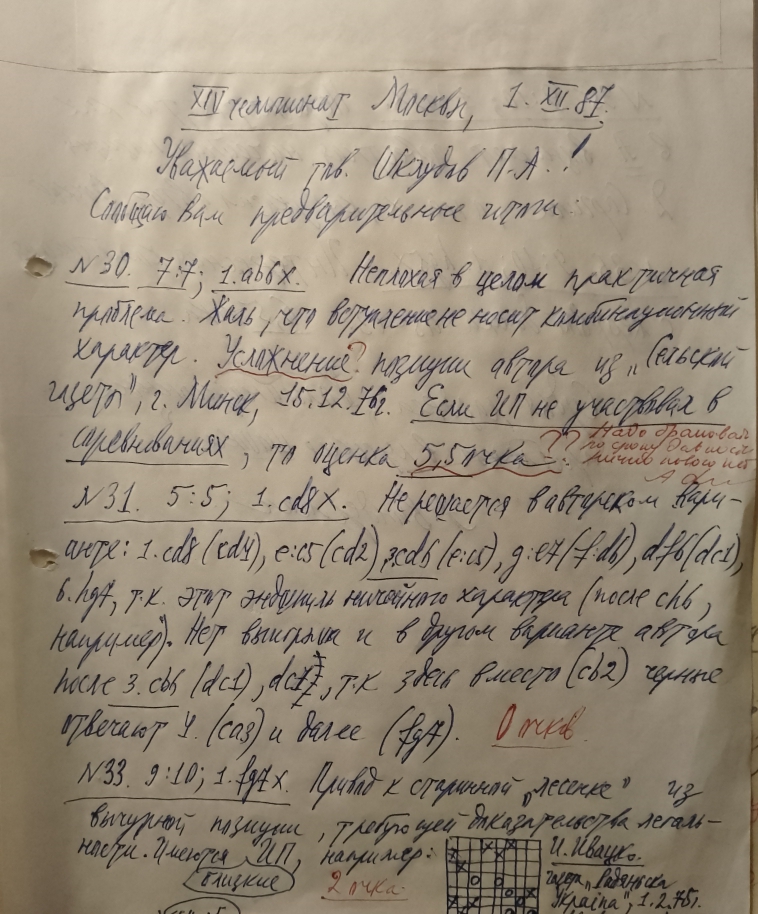 XIV чемпионат Москвы, 1. XII. 87.
Уважаемый тов. Шклудов П.А.!
Сообщаю Вам предварительные итоги:
№30. 7:7; 1.ab6X. Неплохая в целом практичная
проблема. Жаль, что вступление не носит комбинационный
характер. Усложнение? позиции автора из „Сельской
газеты", г. Минск, 15.12.76г. Если ИП не участвовал в
соревнованиях, то оценка 5,5 очка ??
Надо браковать
по сроку давности
ничего нового нет
№31. 5:5; 1.cd8X. Не решается в авторском вари-
анте: 1.cd8 (cd4), e:c5 (cd2), 3.cd6 (e:c5), g:e7 (f:d6), df6 (dc1),
6.hg7, т.к. этот эндшпиль ничейного характера (после ch6,
например). Нет выигрыша и в другом варианте автора
после 3.cb6 (dc1), т.к здесь вместо (cb2) черные
отвечают 4. (ca3) и далее (fg7). 0 очков.
№33. 9:10; 1.fg7X. Привод к старинной „лесенке" из
вычурной позиции, требующей доказательства легаль-
ности. Имеются ИП, например:
близкие
2 очка.
И. Ивацко.
газета „Радянська
Україна", 1.2.75г.